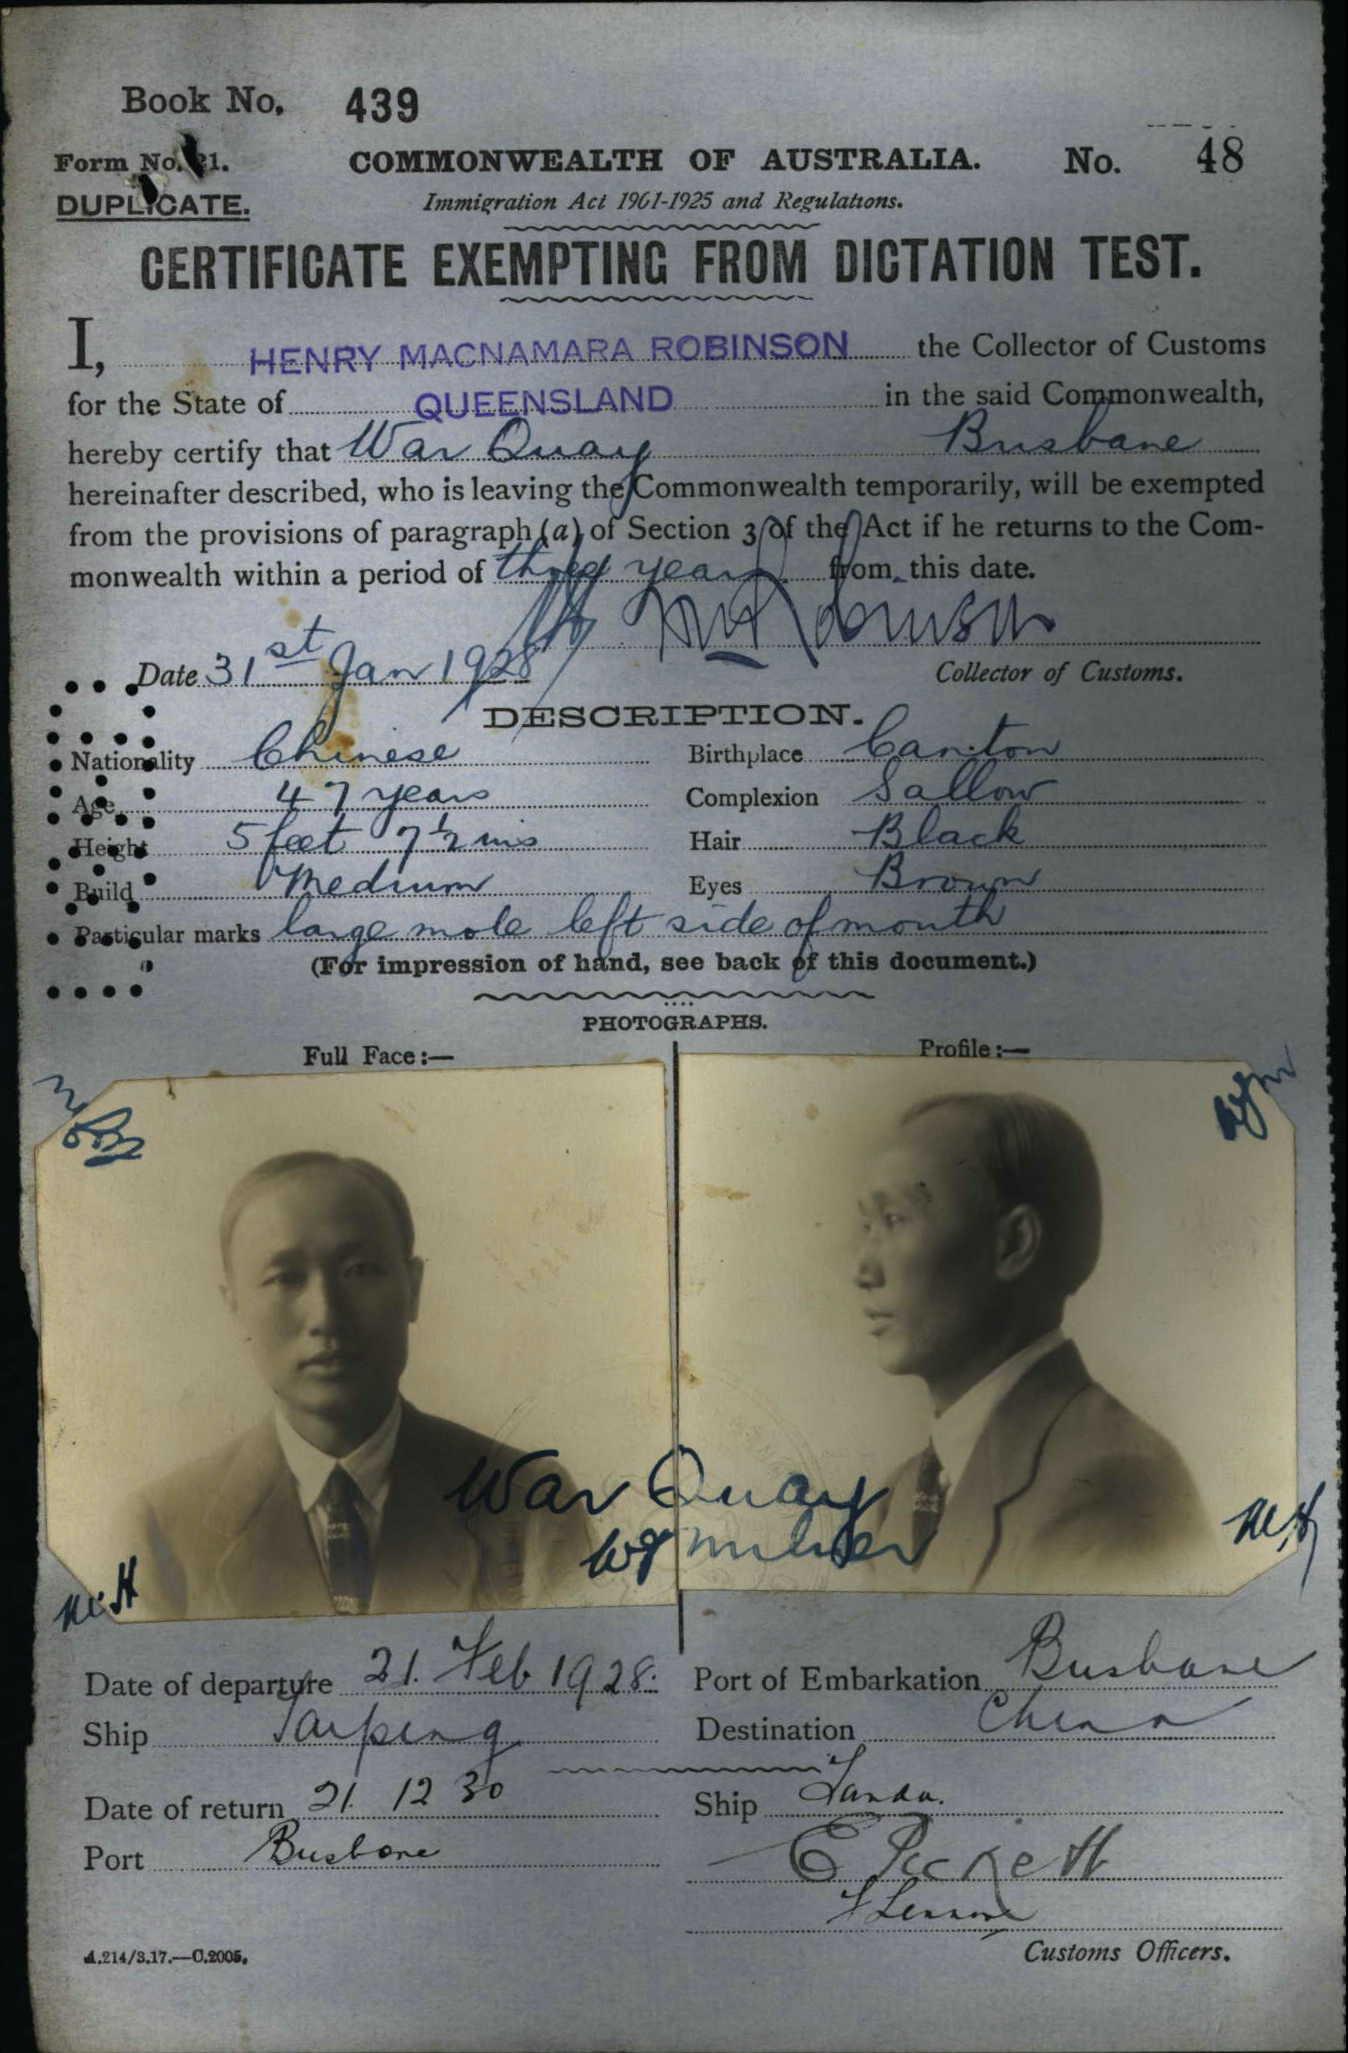 Book No. 439
Form No. 21.
COMMONWEALTH OF AUSTRALIA.
No. 48
DUPLICATE.
Immigration Act 1901-1925 and Regulations.
CERTIFICATE EXEMPTING FROM DICTATION TEST.
I, HENRY MACNAMARA ROBINSON the Collector of Customs
for the State of QUEENSLAND in the said Commonwealth,
hereby certify that War Quay Brisbane
hereinafter described, who is leaving the Commonwealth temporarily, will be exempted
from the provisions of paragraph (a) of Section 3 of the Act if he returns to the Com-
monwealth within a period of three years from this date.
Robinson
Date 31st Jan 1928
Collector of Customs.
DESCRIPTION.
Nationality Chinese
Birthplace Canton
Age 47 years
Complexion Sallow
Height 5 feet 7 1/2 ins
Hair Black
Build Medium
Eyes Brown
Particular marks large mole left side of mouth
(For impression of hand, see back of this document.)
PHOTOGRAPHS.
Full Face:—
Profile:—
War Quay
Date of departure 21. Feb 1928.
Port of Embarkation Brisbane
Ship Taiping
Destination China
Date of return 21 12 30
Ship Tanda.
Port Brisbane
E Pickett
Customs Officers.
A.214/3.17.—C.2005.